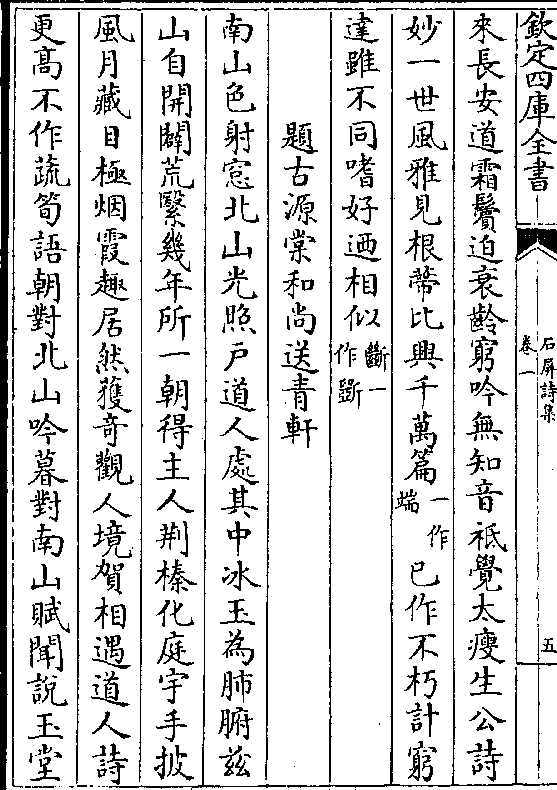 欽定四庫全書
石屏詩集
卷一
五
來長安道霜鬢迫衰齡窮吟無知音祗覺太瘦生公詩
妙一世風雅見根蔕比興千萬篇一作端已作不朽計窮
達雖不同嗜好迺相似斷一作斷
題古源棠和尚送青軒
南山色射窓北山光照戶道人處其中冰玉為肺腑兹
山自開闢荒翳幾年所一朝得主人荆榛化庭宇手披
風月藏目極烟霞趣居然獲竒觀人境賀相遇道人詩
更髙不作蔬筍語朝對北山吟暮對南山賦聞說玉堂